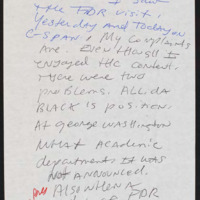 I saw
the FDR visit,
Yesterday and Today on
C-SPAN. My Complaints
Are. Even though I
enjoyed the content.
There were two
problems. Allida
BLACK is position
At george Washington
What academic
department. It was
Not announced.
Also when A
FDR